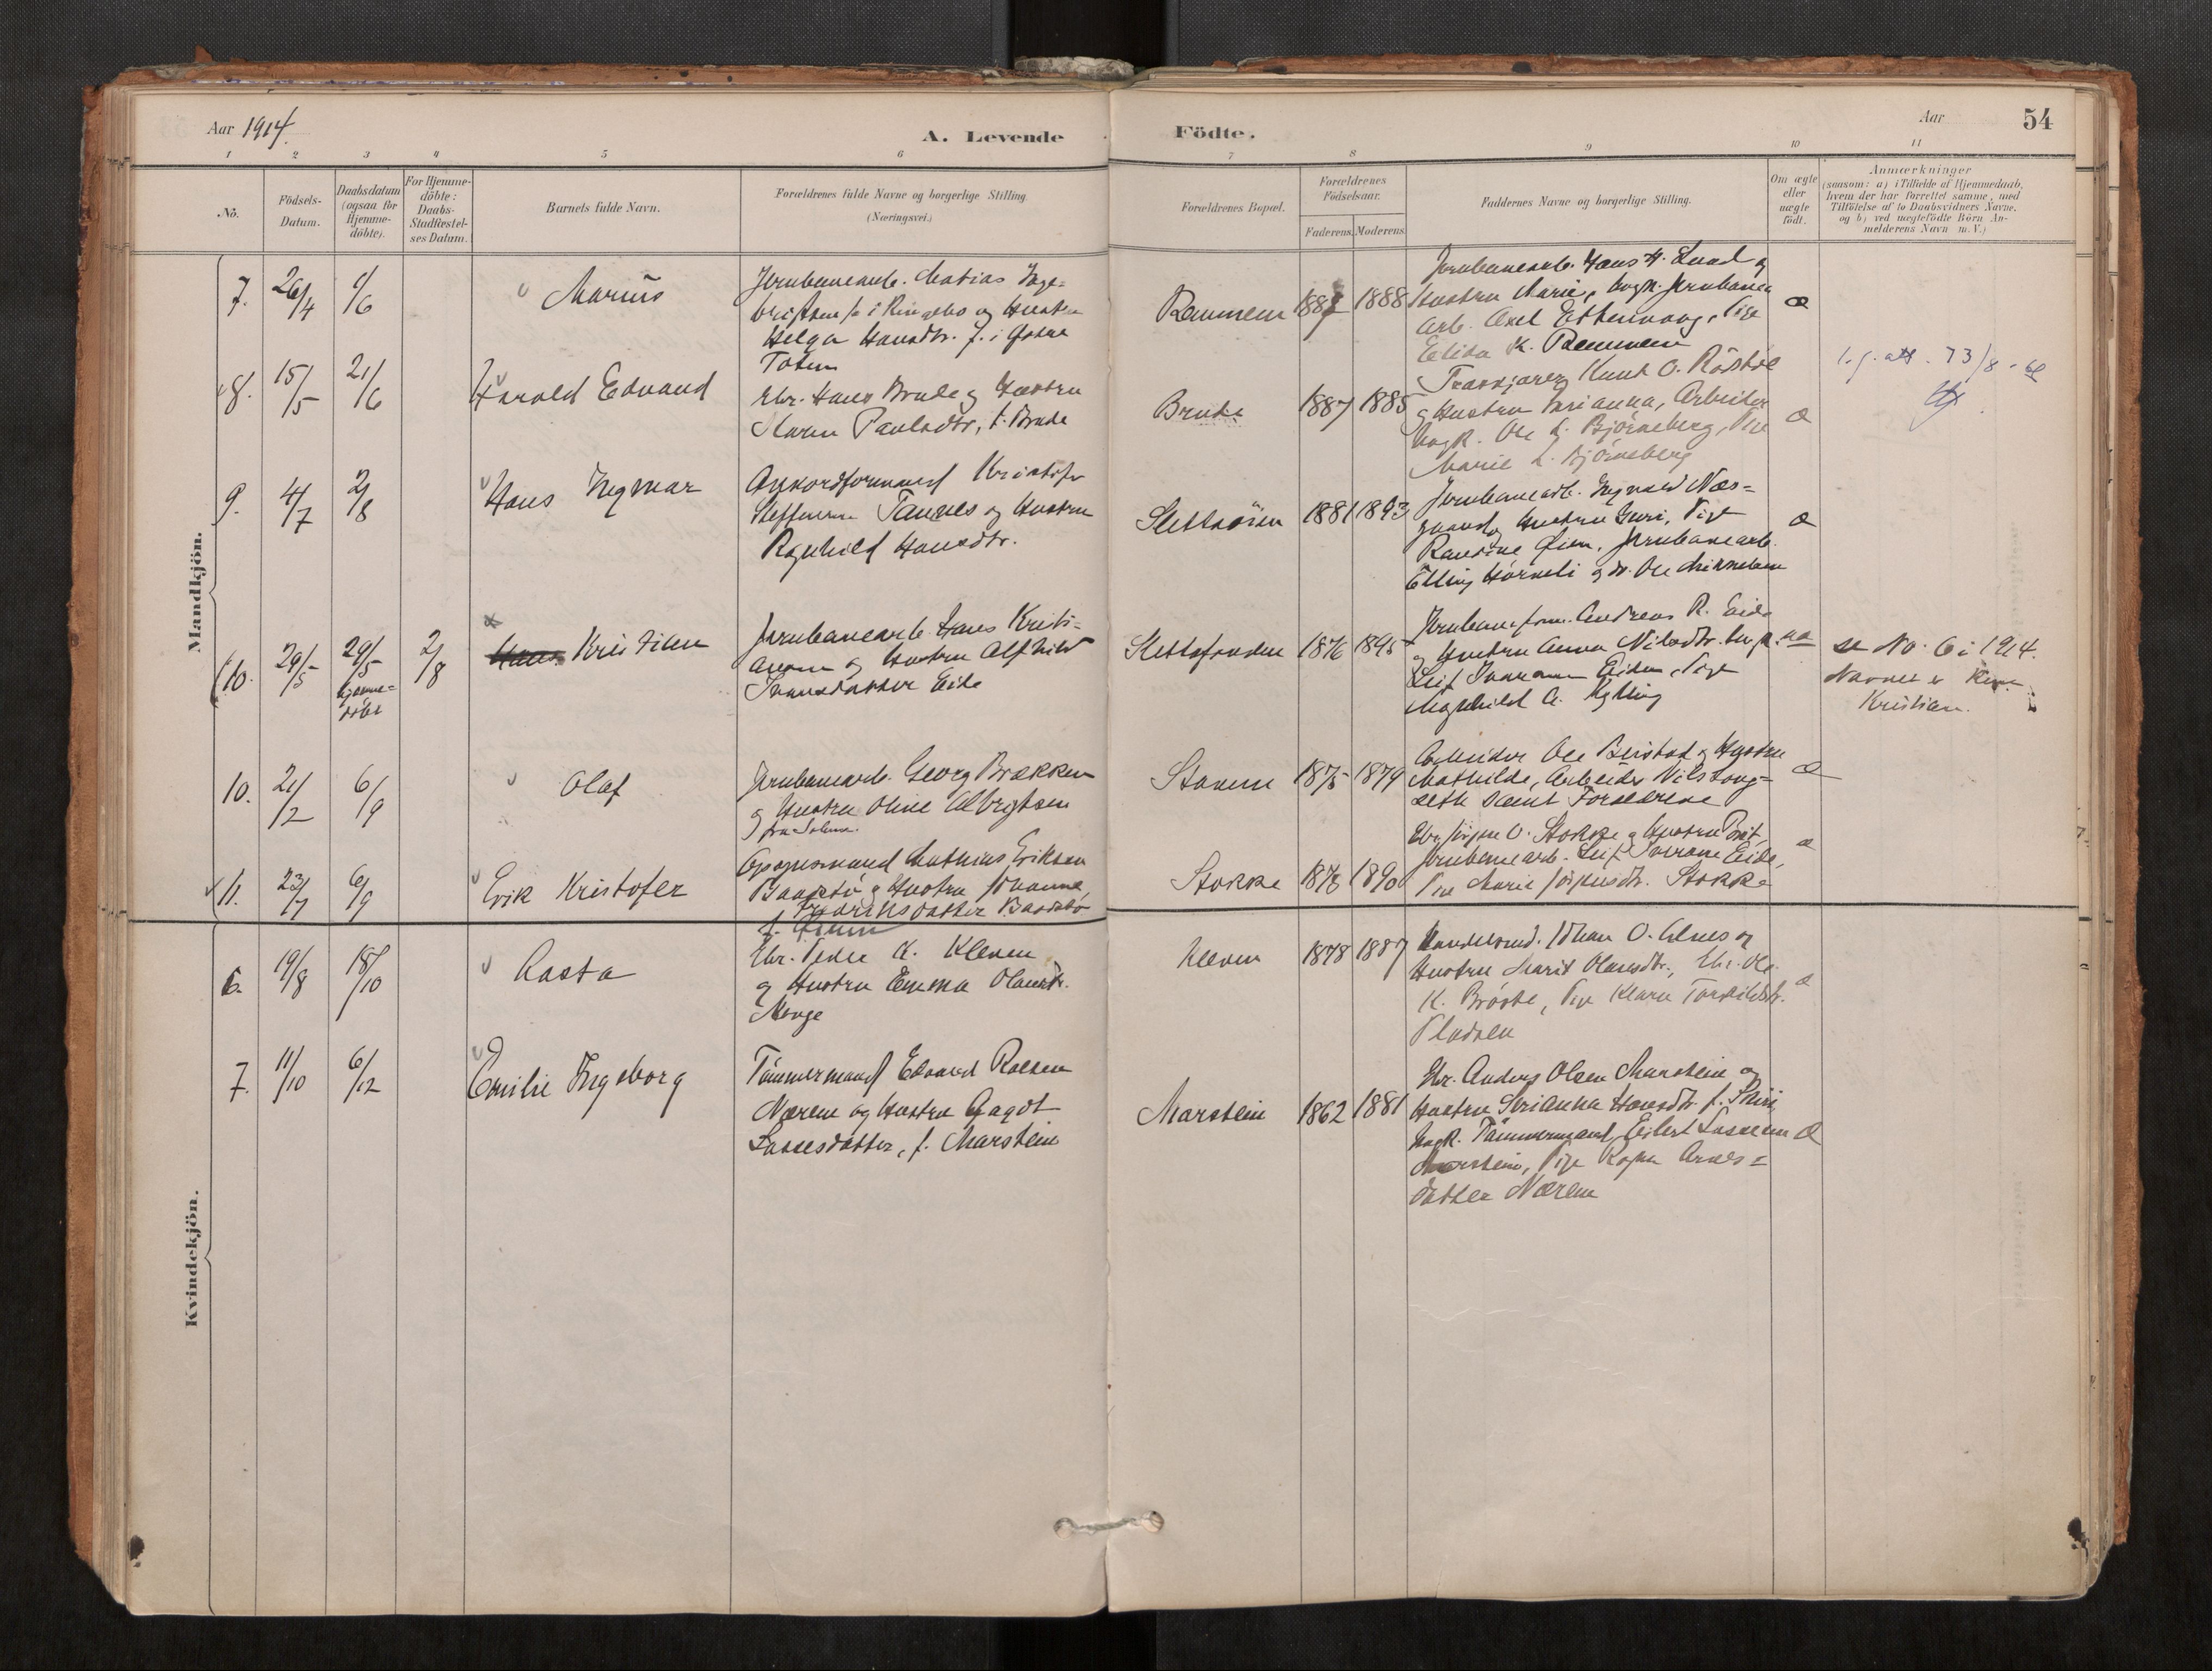 Aar 1914.
A. Levende
Födte.
Aar
54
1 2 3 4 5 6 7 8 9 10 11
No.
Födsels-
Datum.
Daabsdatum
(ogsaa for
Hjemme-
döbte).
For Hjemme-
döbte:
Daabs-
Stadfæstel-
ses Datum.
Barnets fulde Navn.
Forældrenes fulde Navne og borgerlige Stilling.
(Næringsvei.)
Forældrenes Bopæl.
Forældrenes
Födselsaar.
Faderens. Moderens.
Faddernes Navne og borgerlige Stilling.
Om ægte
eller
uægte
födt.
Anmærkninger
(saasom: a) i Tilfælde af Hjemmedaab,
hvem der har forrettet samme, med
Tilföielse af to Daabsvidners Navne.
og b) ved uægtefödte Börn An-
melderens Navn m. V.)
Mandkjön.
7. 26/4 1/6
Marius
Jernbanearb. Matias Inge-
brigtsen f. i Ringebo og Hustru
Helga Hansdtr. f. i Østre
Toten
Remmem
1888
Jernbanearb. Hans H. Lund og
Hustru Marie, ungk. Jernbane
arb. Axel Ettenvaag, Pige
Elida K. Remmem
æ
8. 15/5 21/6
Harald Edvard
Ebr. Hans Brude og Hustru
Karen Paulsdtr, f. Brude
Brude
1887 1885
Knut O. Röstöl
og Hustru Marianna, Arbeider
ungk. Ole L. Björneberg, Pige
Marie L. Björneberg
æ
9. 4/7 2/8
Hans Ingmar
Akkordformand Kristofer
Steffensen Tannes og Hustru
Ragnhild Hansdtr.
Slettaöien
1881 1893
Jernbanearb. Ingvald Næs-
gaard og Hustru Guri, Pige
Randine Öien, Jernbanearb.
Elling Hörneli og do. Ole Mikkelsen
æ
10. 29/5 29/5
hjemme-
döbt
2/8
Hans Kristian
Jernbanearb. Hans Kristi-
ansen og Hustru Alfhild
Ivarsdatter Eide
Slettafonden
1876 1895
Jernbaneform. Andreas R. Eide
og Hustru Anna Nilsdtr. ungk.
Leif Ivarsen Eiden, Pige
Magnhild A. Kylling
se No. 6 i 1914.
Navnet er
Kristian.
10. 21/2 6/9
Olaf
Jernbanearb. Georg Brækken
og Hustru Oline Albrigtsen
Stavem
1875 1879
Arbeider Ole Beistad og Hustru
Mathilde, Arbeider Nils Tong-
seth samt Forældrene
æ
11. 23/7 6/9
Erik Kristofer
Opsynsmand Mathias Eriksen
Baardsbö og Hustru Johanne
Fredriksdatter Baardsbö
f. Öium
Stokke
1878 1890
Ebr. Jörgen O. Stokke og Hustru Brit,
Jernbanearb. Leif Iversen Eide,
Pige Marie Jörgensdtr. Stokke
æ
Kvindekjön.
6. 19/8 18/10
Aasta
Ebr. Peder K. Kleven
og Hustru Emma Olausdtr.
Monge
Kleven
1878 1887
Handelsmd. Johan O. Alnes og
Hustru Marit Olausdtr., Ebr. Ole
K. Bröste, Pige Klara Torkildsdtr.
Pladsen
æ
7. 11/10 6/12
Emilie Ingeborg
Tömmermand Edvard Roelsen
Nærem og Hustru Gagot
Lassesdatter, f. Marstein
Marstein
1862 1881
Ebr. Anders Olsen Marstein og
Hustru Serianna Hansdtr. f. Skiri
ungk. Tömmermand Eilert Lassesen
Marstein, Pige Ragna Arnes-
datter Nærem
æ